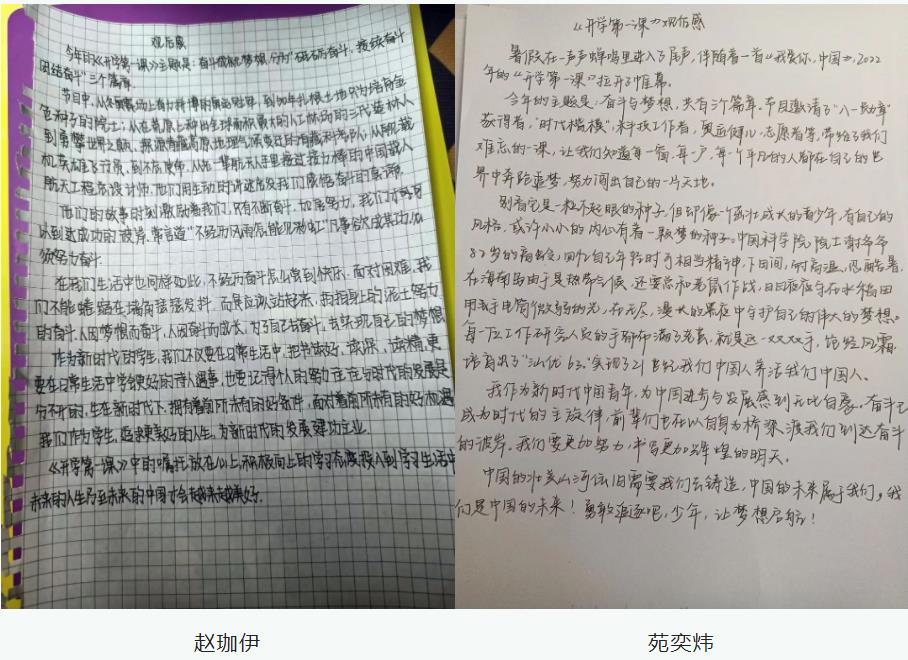 观后感
今年的《开学第一课》主题是：奋斗成就梦想，分为"砥砺奋斗、接续奋斗
团结奋斗"三个篇章
节目中，从冬奥赛场上奋力拼搏的
色种子的院士；从在荒原上种出全球面积最大的人工林场的三代造林人
到勇攀世界之巅、探源青藏高原地理气候变迁的青藏科考队；从舰载
机英雄飞行员，到不忘使命，从老一辈航天人手里接过接力棒的中国载人
航天工程总设计师，他们用生动的讲述启发我们感悟奋斗的真谛。
他们的故事时刻激励着我们，只有不断奋斗，加倍努力，我们才会可
以到达成功的彼岸，常言道"不经历风雨怎能见彩虹"凡事欲成其功，必
须努力奋斗
在我们生活中也同样如此，不经历奋斗怎么尝到快乐，面对困难，我
们不能蜷缩在墙角瑟瑟发抖，而是应该站起来，拍拍身上的泥土努力
的奋斗，人因梦想而奋斗，人因奋斗而成长，为了自己去奋斗，去实现自己的梦想
作为新时代的学生，我们不仅要在日常生活中，把书读好、读深、读精，更
要在日常生活中学会更好的待人遇事，也要记得个人的努力往往与时代的发展是
分不开的，生在新时代下，拥有着前所未有的好条件，面对着前所未有的好机遇
我们作为学生，追求更美好的人生，为新时代的发展建功立业
《开学第一课》中的嘱托，放在心上，积极向上的学习态度投入到学习生活中
未来的人生乃至未来的中国才会越来越美好.
赵珈伊
《开学第一课》观后感
暑假在一声声蝉鸣里进入了尾声，伴随着一首《我爱你，中国》，2022
年的《开学第一课》拉开了帷幕。
今年的主题是：奋斗与梦想，共有三个篇章。节目邀请了"八一勋章"
获得者，"时代楷模"，科技工作者，奥运健儿，志愿者等，带给了我们
难忘的一课，让我们知道每一窗，每一户，每一个平凡的人都在自己的世
界中奔跑追梦，努力闯出自己的一马天地。
别看它是一粒不起眼的种子，但却像一个茁壮成长的青少年，有自己的
风格，或许小小的内心有着一颗梦的种子。中国科学院院士谢华安
82岁的高龄，
在海南岛由于是热带气候，还要忍和老鼠作战，日日夜夜守在水稻田
用着手电筒微弱的光，在无尽，漫长的黑夜中守护自己的伟大的梦想。
每一位工作研究人员的手都布满了老茧，就是这一双双手，饱经风霜
培育出了"汕优63"实现了21世纪我们中国人养活我们中国人。
我作为新时代中国青年，为中国进步与发展感到无比自豪，奋斗已
成为时代的主旋律，前辈们也在以自身为桥梁，渡我们到达奋斗
的彼岸。我们要更加努力，书写更加辉煌的明天。
中国的壮美山河依旧需要我们去铸造，中国的未来属于我们，我
们是中国的未来！勇敢追逐吧，少年，让梦想启航！
苑奕炜